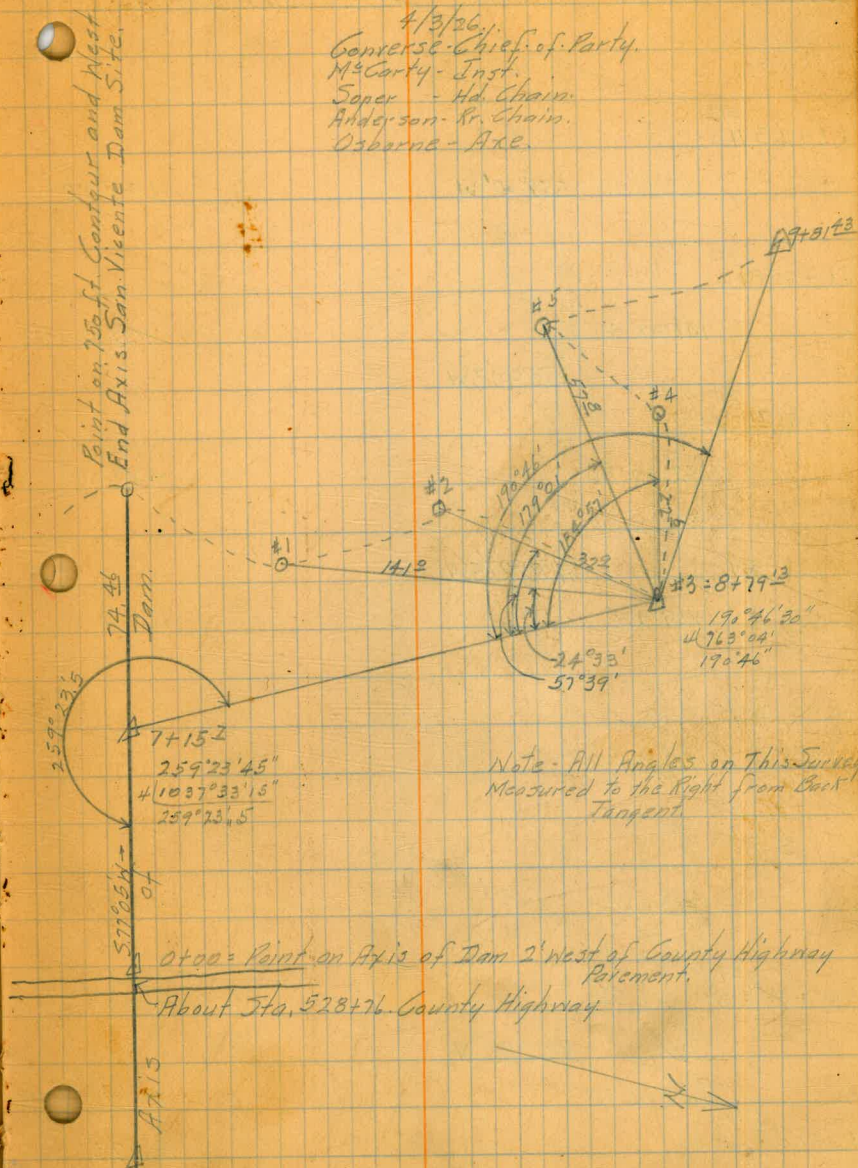 4/3/26.
Converse - Chief of Party.
McCarty - Inst.
Soper - Hd. Chain.
Anderson - Rr. Chain.
Osborne - Axe.
Point on 750 ft Contour and West
End Axis San Vicente Dam Site.
9+81 43
#5
57 8
#4
22
190°46'
179°01'
154°57'
#2
32 9
#1
141 9
#3 = 8+79 13
190°46'30"
4 763°04'
190°46"
24°33'
57°39'
74.46
Dam.
259°23'.5
7+15 2
259°23'45"
4 1037°33'15"
259°23'.5
Note - All Angles on This Survey
Measured to the Right from Back
Tangent.
S77°05'W
of
0+00 = Point on Axis of Dam 2' West of County Highway
Pavement.
About Sta. 528+76 County Highway.
Axis
N